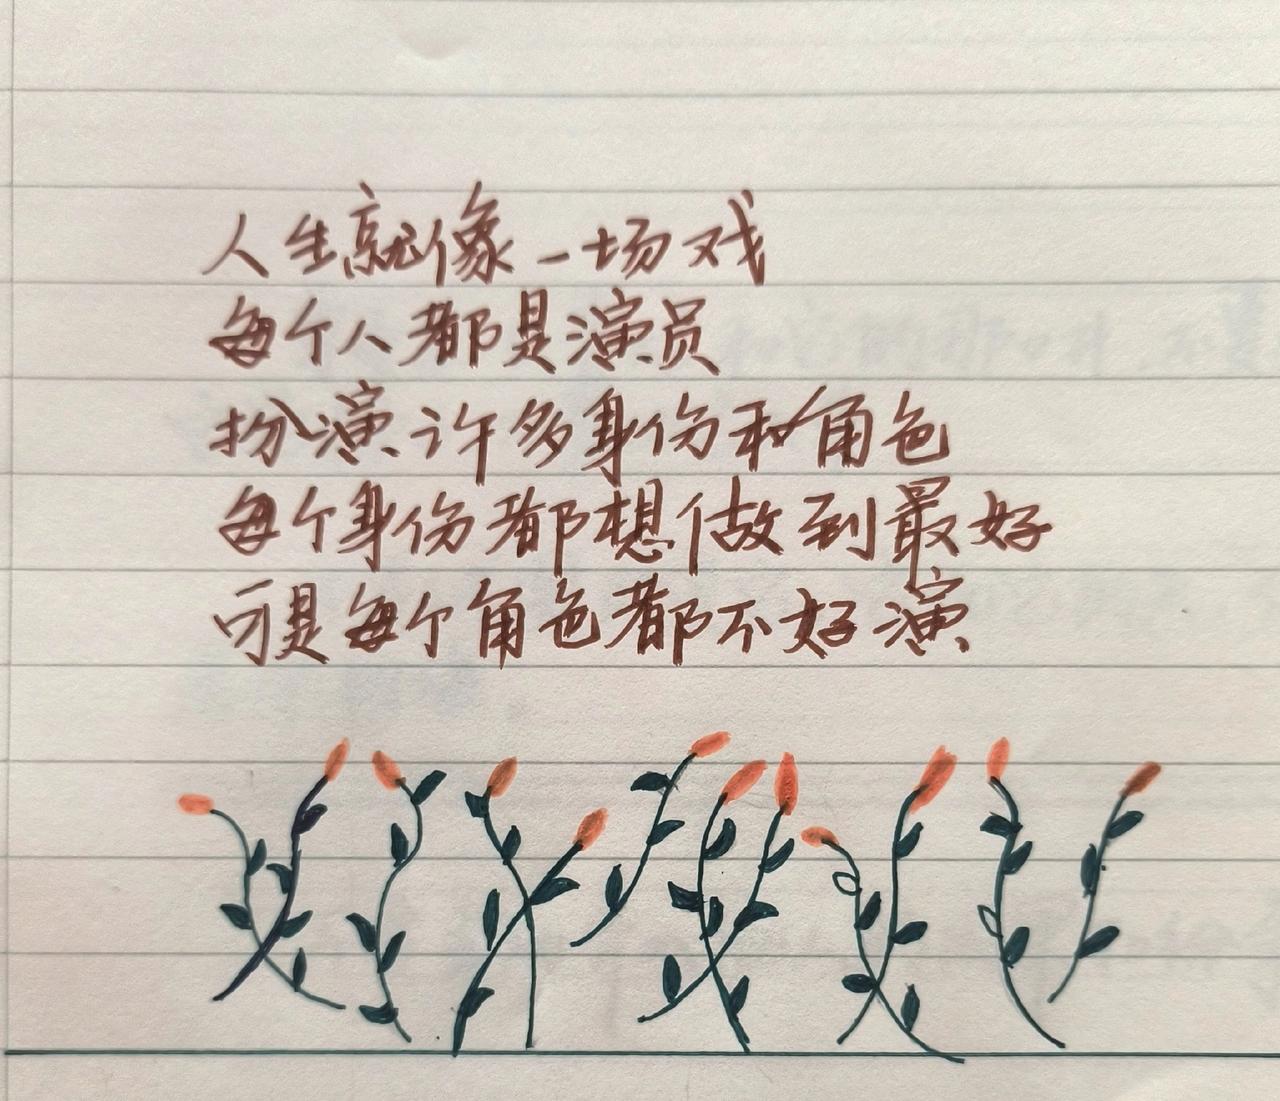 人生就像一场戏
每个人都是演员
扮演许多身份和角色
每个身份都想做到最好
可是每个角色都不好演